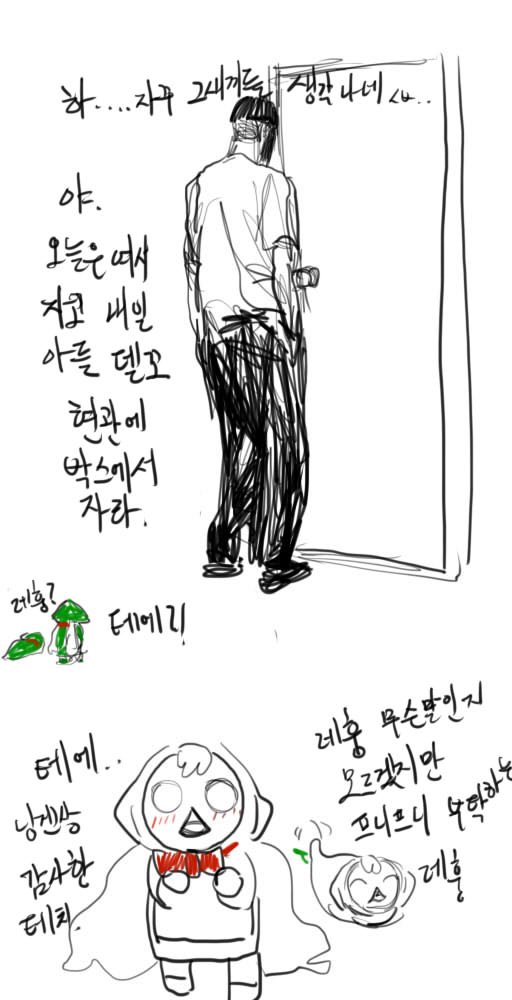 하....자꾸 그새끼들 생각나네 ㅆㅂ..
야.
오늘은 여서
자고 내일
아들 델꼬
현관에
박스에서
자라.
레훙?
테에?!
테에..
닝겐상
감사한
테치.
레훙 무슨말인지
모르겠지만
프니프니 부탁하는
레훙